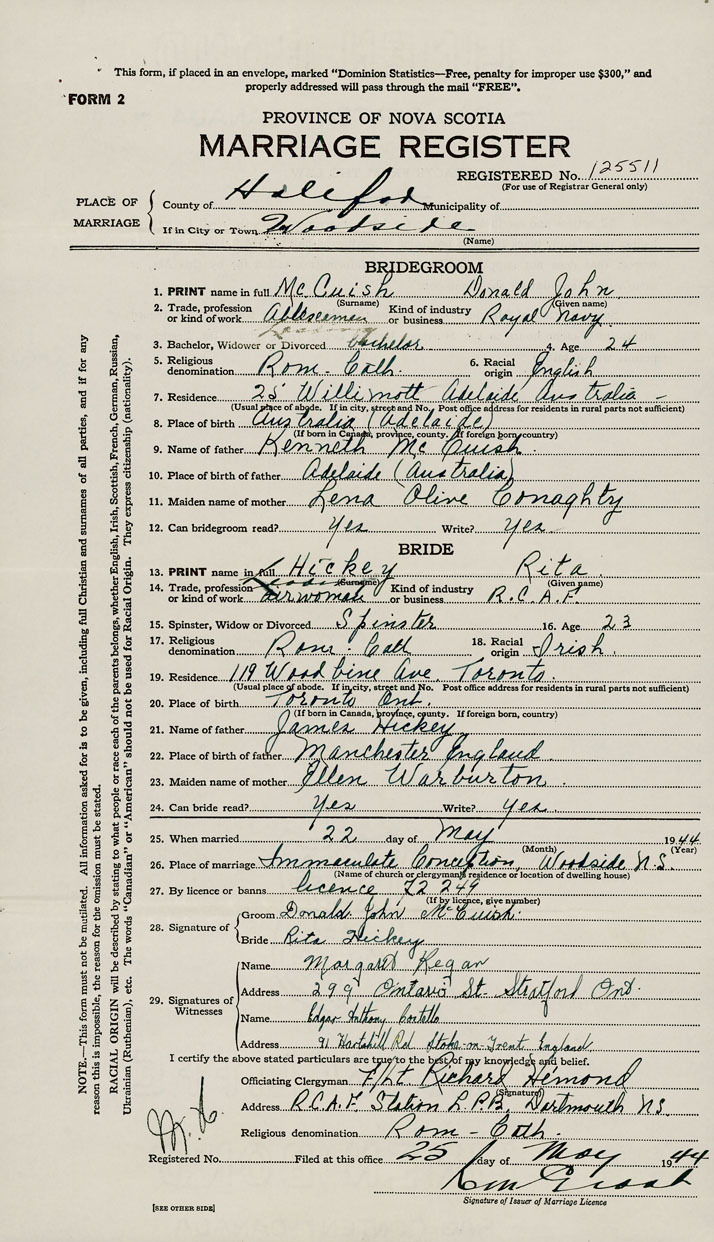 This form, if placed in an envelope, marked "Dominion Statistics—Free, penalty for improper use $300," and
properly addressed will pass through the mail "FREE".
FORM 2
PROVINCE OF NOVA SCOTIA
MARRIAGE REGISTER
REGISTERED No. 125511
(For use of Registrar General only)
PLACE OF MARRIAGE
County of Halifax Municipality of
If in City or Town Woodside
(Name)
BRIDEGROOM
1. PRINT name in full McCuish Donald John
(Surname) (Given name)
2. Trade, profession or kind of work Ableseaman Kind of industry or business Royal Navy
3. Bachelor, Widower or Divorced bachelor 4. Age 24
5. Religious denomination Rom-Cath. 6. Racial origin English
7. Residence 25 Willimott Adelaide Australia
(Usual place of abode. If in city, street and No. Post office address for residents in rural parts not sufficient)
8. Place of birth Australia (Adelaide)
(If born in Canada, province, county. If foreign born, country)
9. Name of father Kenneth McCuish
10. Place of birth of father Adelaide (Australia)
11. Maiden name of mother Lena Olive Conaghty
12. Can bridegroom read? Yes Write? Yes
BRIDE
13. PRINT name in full Hickey Rita
(Surname) (Given name)
14. Trade, profession or kind of work airwoman Kind of industry or business R.C.A.F.
15. Spinster, Widow or Divorced Spinster 16. Age 23
17. Religious denomination Rom-Cath 18. Racial origin Irish
19. Residence 119 Woodbine Ave. Toronto.
(Usual place of abode. If in city, street and No. Post office address for residents in rural parts not sufficient)
20. Place of birth Toronto Ont.
(If born in Canada, province, county. If foreign born, country)
21. Name of father James Hickey
22. Place of birth of father Manchester England
23. Maiden name of mother Ellen Warburton
24. Can bride read? Yes Write? Yes
25. When married 22 day of May 1944
(Month) (Year)
26. Place of marriage Immaculate Conception, Woodside N.S.
(Name of church or clergyman's residence or location of dwelling house)
27. By licence or banns licence 72 249
(If by licence, give number)
28. Signature of
Groom Donald John McCuish.
Bride Rita Hickey
29. Signatures of Witnesses
Name Margaret Regan
Address 299 Ontario St. Stratford Ont.
Name Edgar Anthony Costello
Address 91 Hartshill Rd Stoke-on-Trent England
I certify the above stated particulars are true to the best of my knowledge and belief.
Officiating Clergyman F/Lt Richard Hémond
(Signature)
Address R.C.A.F. Station E.P.B. Dartmouth N.S.
Religious denomination Rom-Cath.
Registered No. Filed at this office 25 day of May 1944
Signature of Issuer of Marriage Licence
[SEE OTHER SIDE]
NOTE.—This form must not be mutilated. All information asked for is to be given, including full Christian and surnames of all parties, and if for any
reason this is impossible, the reason for the omission must be stated.
RACIAL ORIGIN will be described by stating to what people or race each of the parents belongs, whether English, Irish, Scottish, French, German, Russian,
Ukrainian (Ruthenian), etc. The words "Canadian" or "American" should not be used for Racial Origin. They express citizenship (nationality).